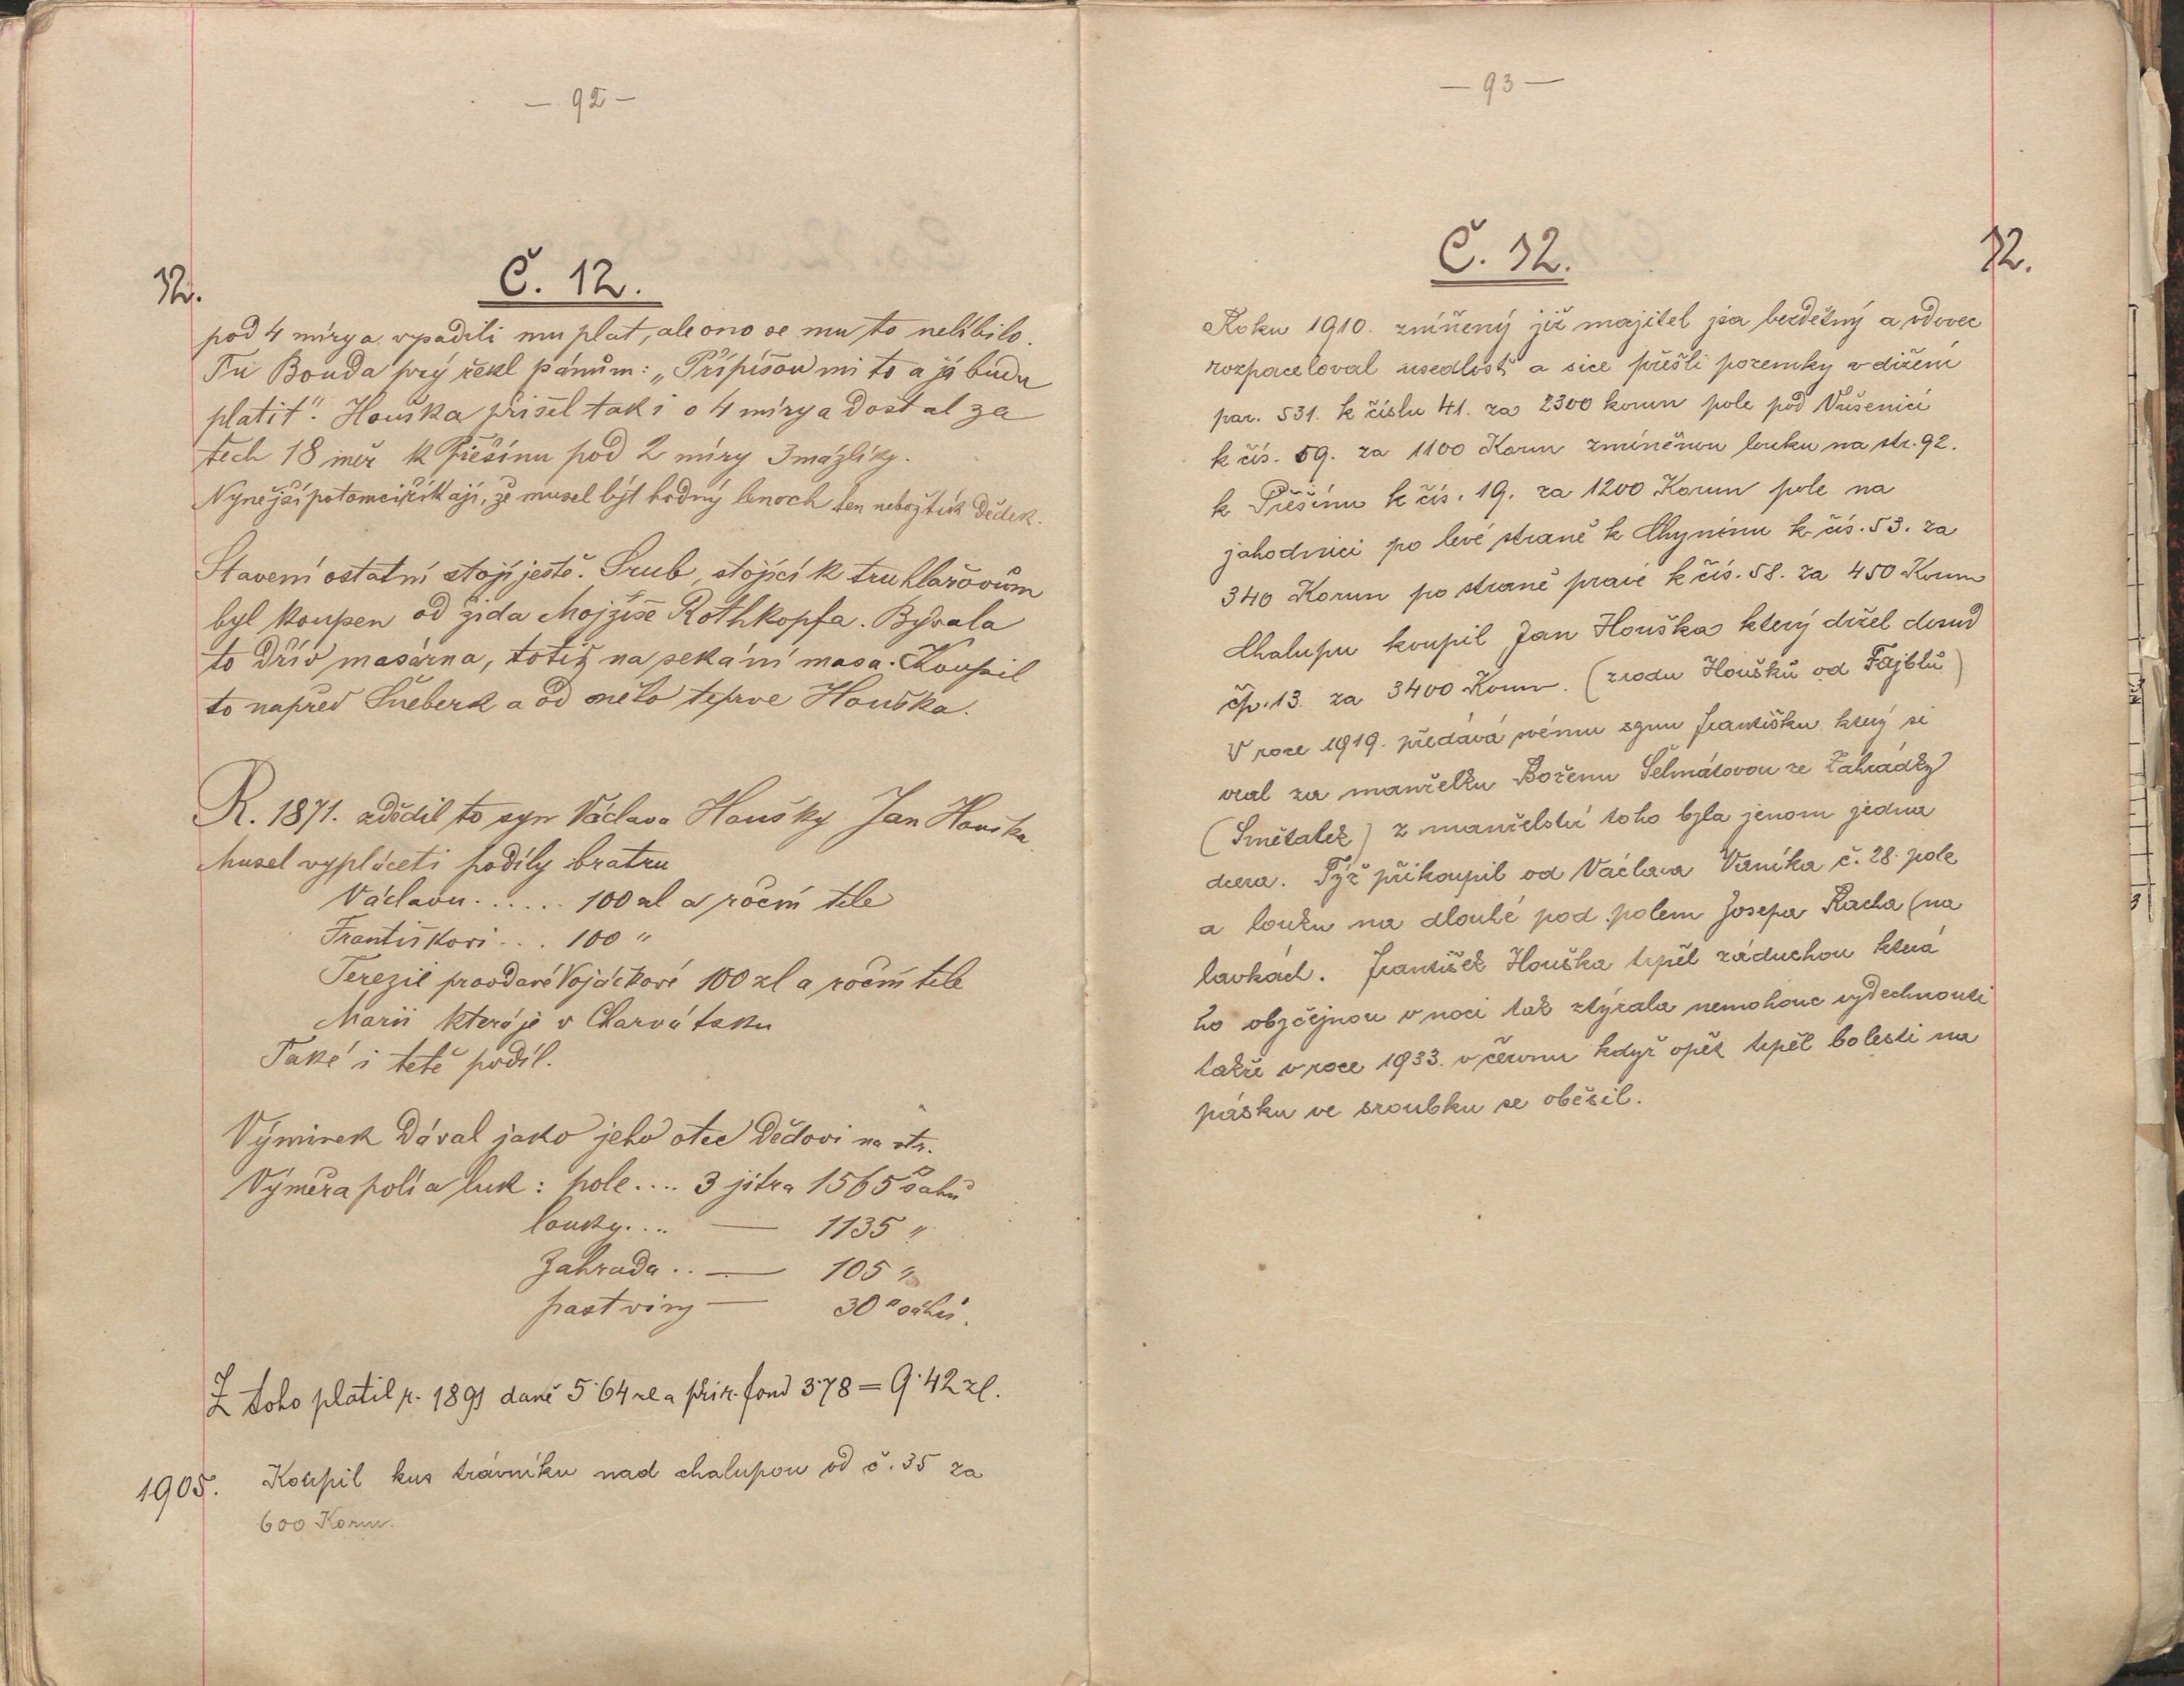 — 92 —
12.
Č. 12.
pod 4 míry a vpadili mu plat, ale ono se mu to nelíbilo.
Tu Bouda prý řekl pánům: „Připišou mi to a já budu
platit". Houška přišel tak i o 4 míry a dostal za
tech 18 měr k Přešínu pod 2 míry 3 mázlíky.
Nynější potomci říkají, že musel být hodný lenoch ten nebožtík dědek.
Stavení ostatní stojí ještě. Srub, stojící k truhlařovům
byl koupen od žida Mojžíše Rothkopfa. Bývala
to dřív masárna, totiž na sekání masa. Koupil
to napřed Šneberk a od něho teprve Houška.
R. 1871. zdědil to syn Václava Houšky Jan Houška.
Musel vypláceti podíly bratru
Václavu...... 100 zl a roční tele
Františkovi... 100 "
Terezii provdané Vojáčkové 100 zl a roční tele
Marii která je v Charvátsku
Také i tetě podíl.
Výminek dával jako jeho otec dědovi na str.
Výměra polí a luk: pole.... 3 jitra 1565 sahů
louky.... — 1135 "
Zahrada.. — 105 "
pastviny — 30 " sáhů.
Z toho platil r. 1891 daně 5·64 zl a přir. fond 3·78 = 9·42 zl.
1905. Koupil kus trávníku nad chalupou od č. 35 za
600 Korun.
— 93 —
Č. 12.
12.
Roku 1910. zmíněný již majitel jsa bezdětný a vdovec
rozparceloval usedlosť a sice přešli pozemky v držení
par. 531. k číslu 41. za 2300 korun pole pod Vušenicí
k čís. 59. za 1100 Korun zmíněnou louku na str. 92.
k Přešínu k čís. 19. za 1200 Korun pole na
jahodnici po levé straně k Chynínu k čís. 53. za
340 Korun po straně pravé k čís. 58. za 450 Korun
Chalupu koupil Jan Houška který držel dosud
čp. 13. za 3400 Korun. (z rodu Houšků od Fajblů)
V roce 1919. předává svému synu Františku který si
vzal za manželku Boženu Šelmátovou ze Zahrádky
(Smětalek) z manželství toho byla jenom jedna
dcera. Týž přikoupil od Václava Vaníka č. 28. pole
a louku na dlouhé pod polem Josefa Racha (na
lavkách. František Houška trpěl záduchou která
ho obyčejnou v noci tak ztýrala nemohouc vydechnouti
takže v roce 1933. v červnu když opět trpěl bolesti na
pásku ve sroubku se oběsil.